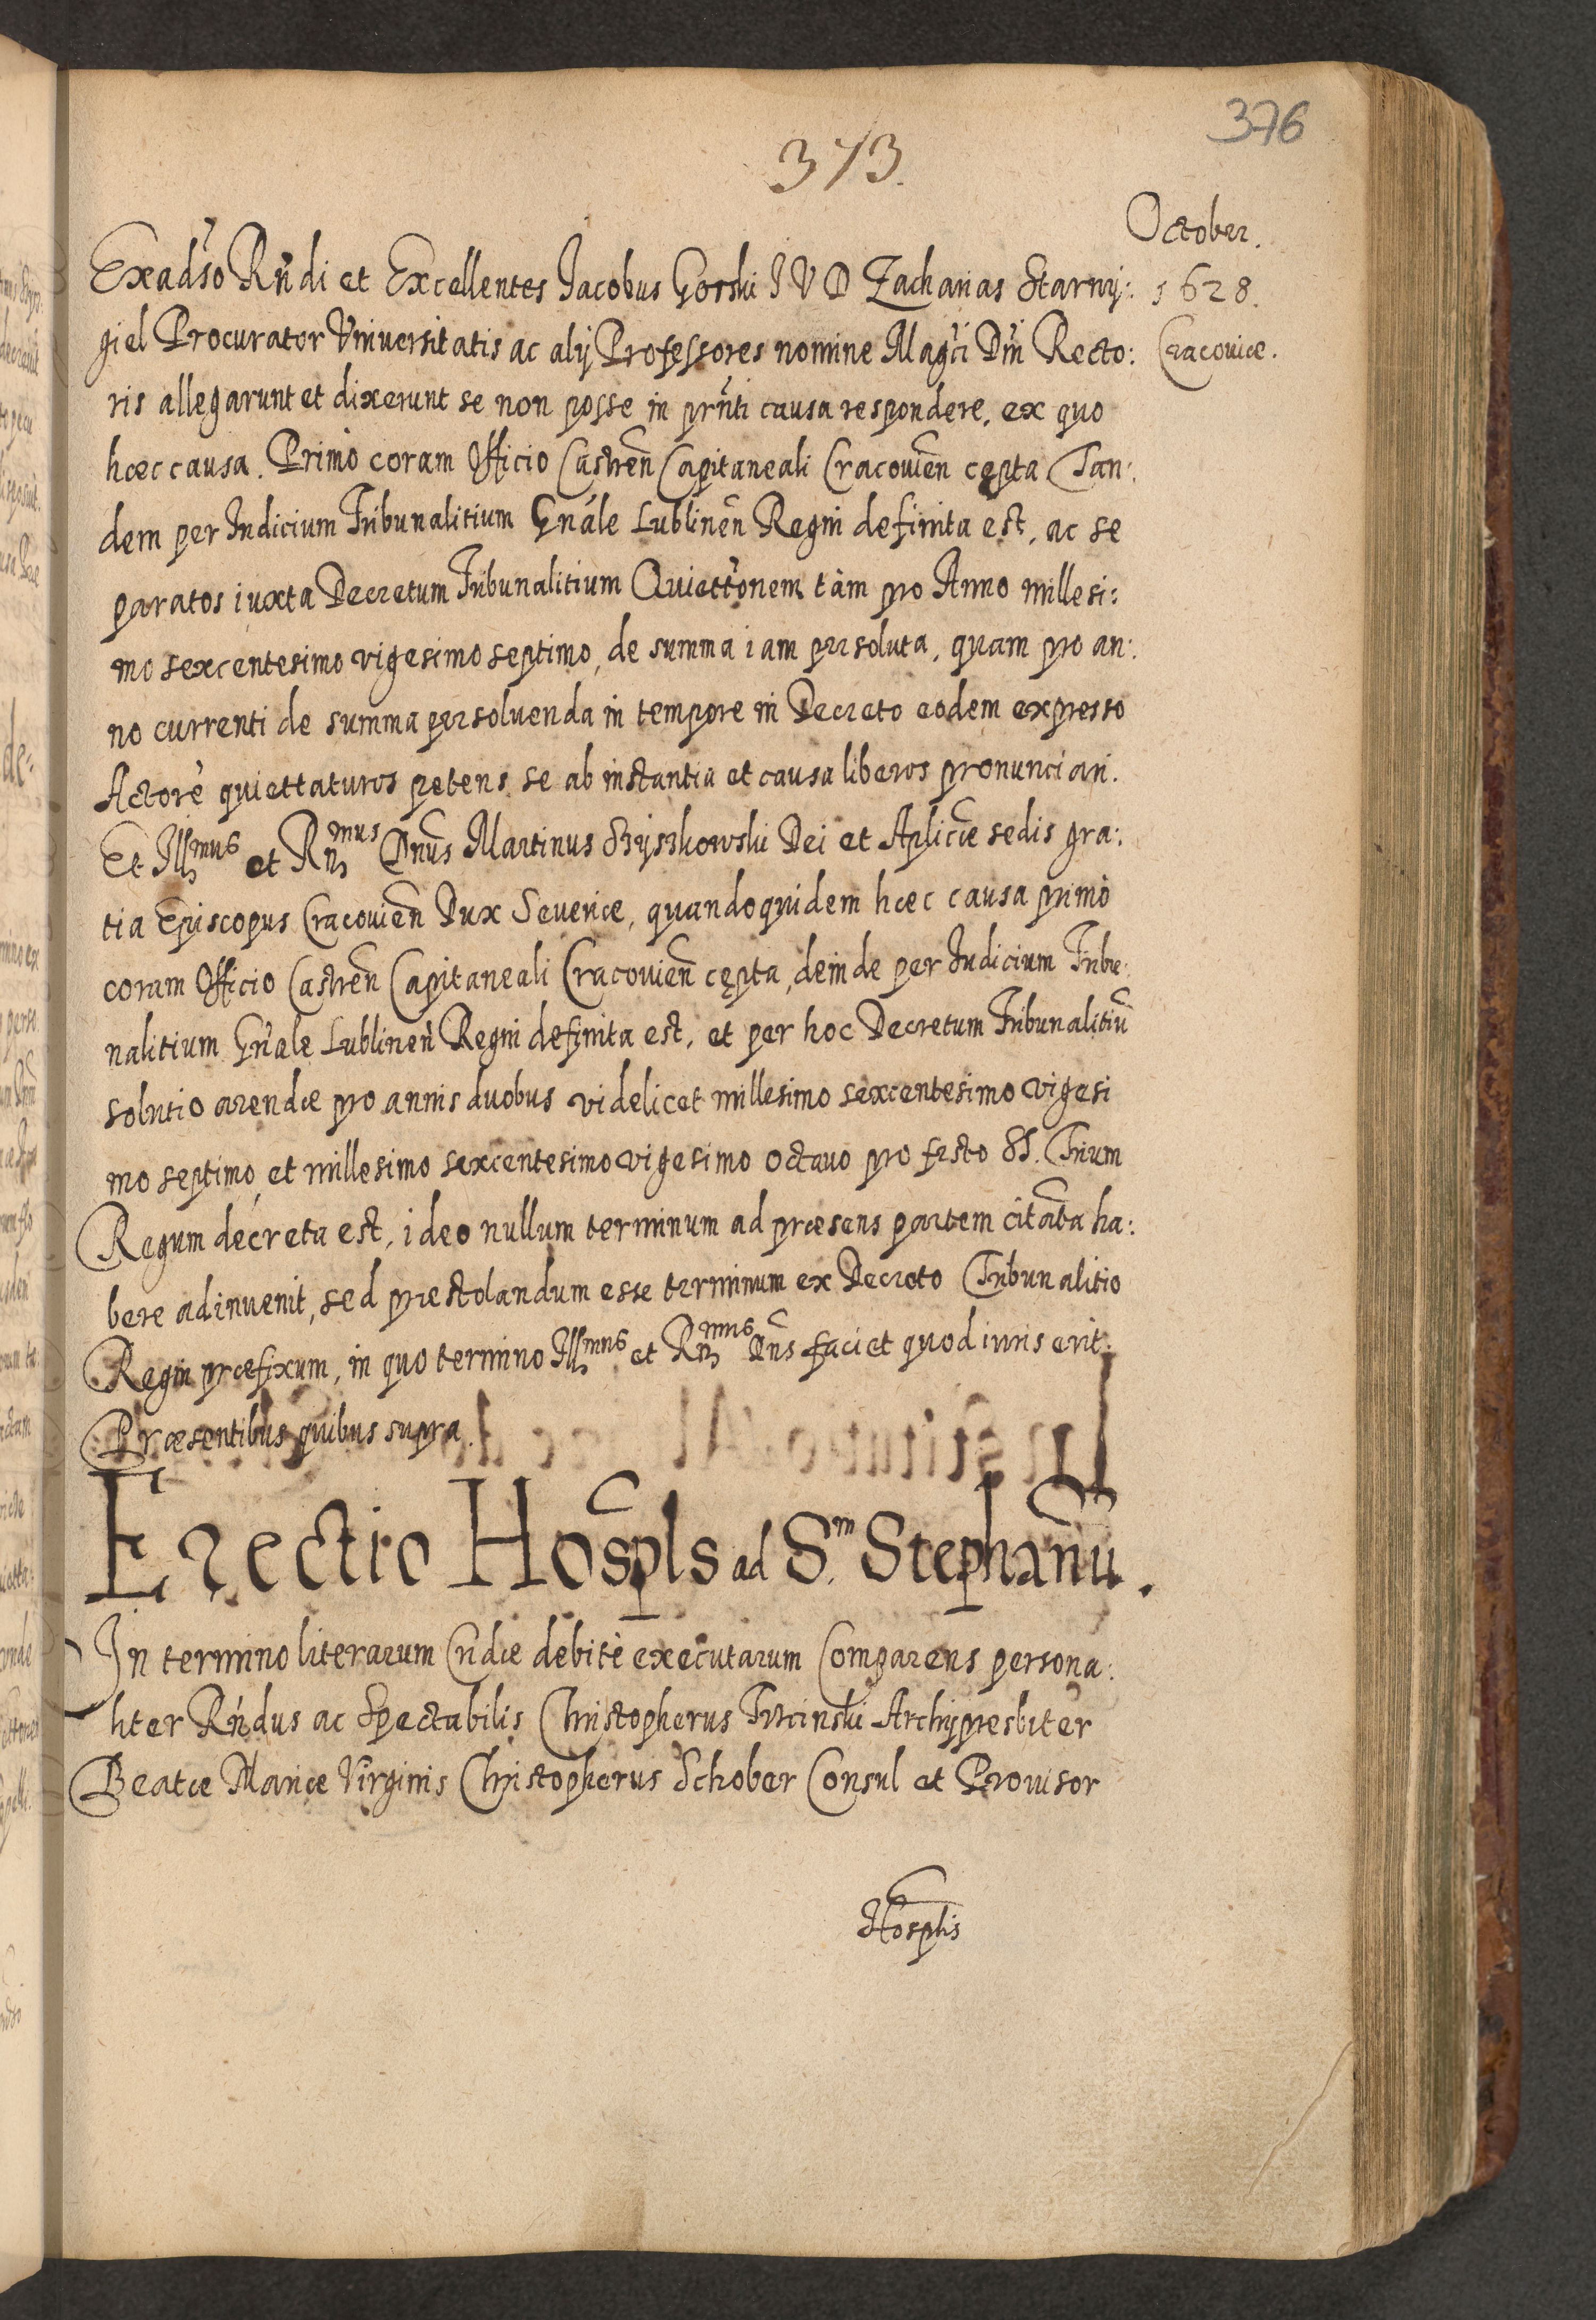 376
373.
October.
1628.
Cracoviæ.
Exadūso Rñdi et Excellentes Jacobus Gorski I V D Zacharias Starny:
giel Procurator Universitatis ac alij Professores nomine Magči Dñi Recto:
ris allegarunt et dixerunt se non posse in prñti causa respondere, ex quo
hæc causa. Primò coram Officio Castreñ Capitaneali Cracovieñ cępta Tan:
dem per Iudicium Tribunalitium Gñale Lublineñ Regni definita est, ac se
paratos iuxta Decretum Tribunalitium Quiettõnem tàm pro Anno millesi:
mo sexcentesimo vigesimo septimo, de summa iam persoluta, quam pro an:
no currenti de summa persoluenda in tempore in Decreto eodem expresso
Actorẽ quiettaturos petens se ab instantia et causa liberos pronunciari.
Et Illmus et Rnmus Dñus Martinus Szyszkowski Dei et Aplicæ sedis gra:
tia Episcopus Cracovieñ Dux Severiæ, quandoquidem hæc causa primò
coram Officio Castreñ Capitaneali Cracovieñ cępta, deinde per Iudicium Tribu:
nalitium Gñale Lublineñ Regni definita est, et per hoc Decretum Tribunalitiũ
solutio arendæ pro annis duobus videlicet millesimo sexcentesimo vigesi
mo septimo, et millesimo sexcentesimo vigesimo octavo pro festo SS. Trium
Regum decreta est, ideo nullum terminum ad præsens partem citatã ha:
bere adinuenit, sed prestolandum esse terminum ex Decreto Tribunalitio
Regni præfixum, in quo termino Illmus et Rnmus Dñs faciet quod iuris erit.
Præsentibus quibus supra.
Erectio Hospls ad S.m Stephanũ.
In termino literarum Cridæ debitè executarum Comparens persona:
liter Rñdus ac Spectabilis Christopherus Trzcinski Archypresbiter
Beatæ Mariæ Virginis Christopherus Schober Consul et Provisor
Hosplis